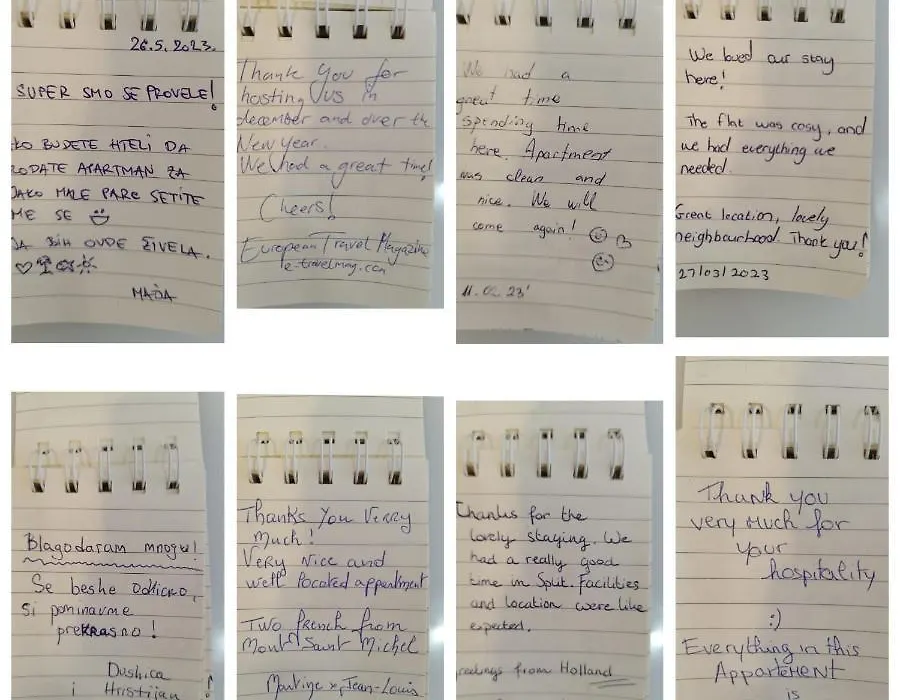 26.5.2023.
SUPER SMO SE PROVELE!
KO BUDETE HTELI DA
RODATE APARTMAN ZA
JAKO MALE PARE SETITE
ME SE
JA BIH OVDE ŽIVELA.
MAĐA
Thank you for
hosting us in
december and over the
New year.
We had a great time!
Cheers!
European Travel Magazine
e-travelmag.com
We had a
great time
spending time
here. Apartment
was clean and
nice. We will
come again!
We loved our stay
here!
The flat was cosy, and
we had everything we
needed.
Great location, lovely
neighbourhood. Thank you!
27/03/2023
Blagodaram mnogu!
Se beshe odlicno,
Si pominavme
prekrasno!
Dushica
i Hristijan
Thanks You Verry
much!
Very Nice and
well located appentment
Two French from
Mont Saint Michel
Martine x Jean-Louis
Thanks for the
lovely staying. We
had a really good
time in Split. Facilities
and location were like
expected.
reetings from Holland
Thank you
very much for
your
hospitality
:)
Everything in this
Appartement
is